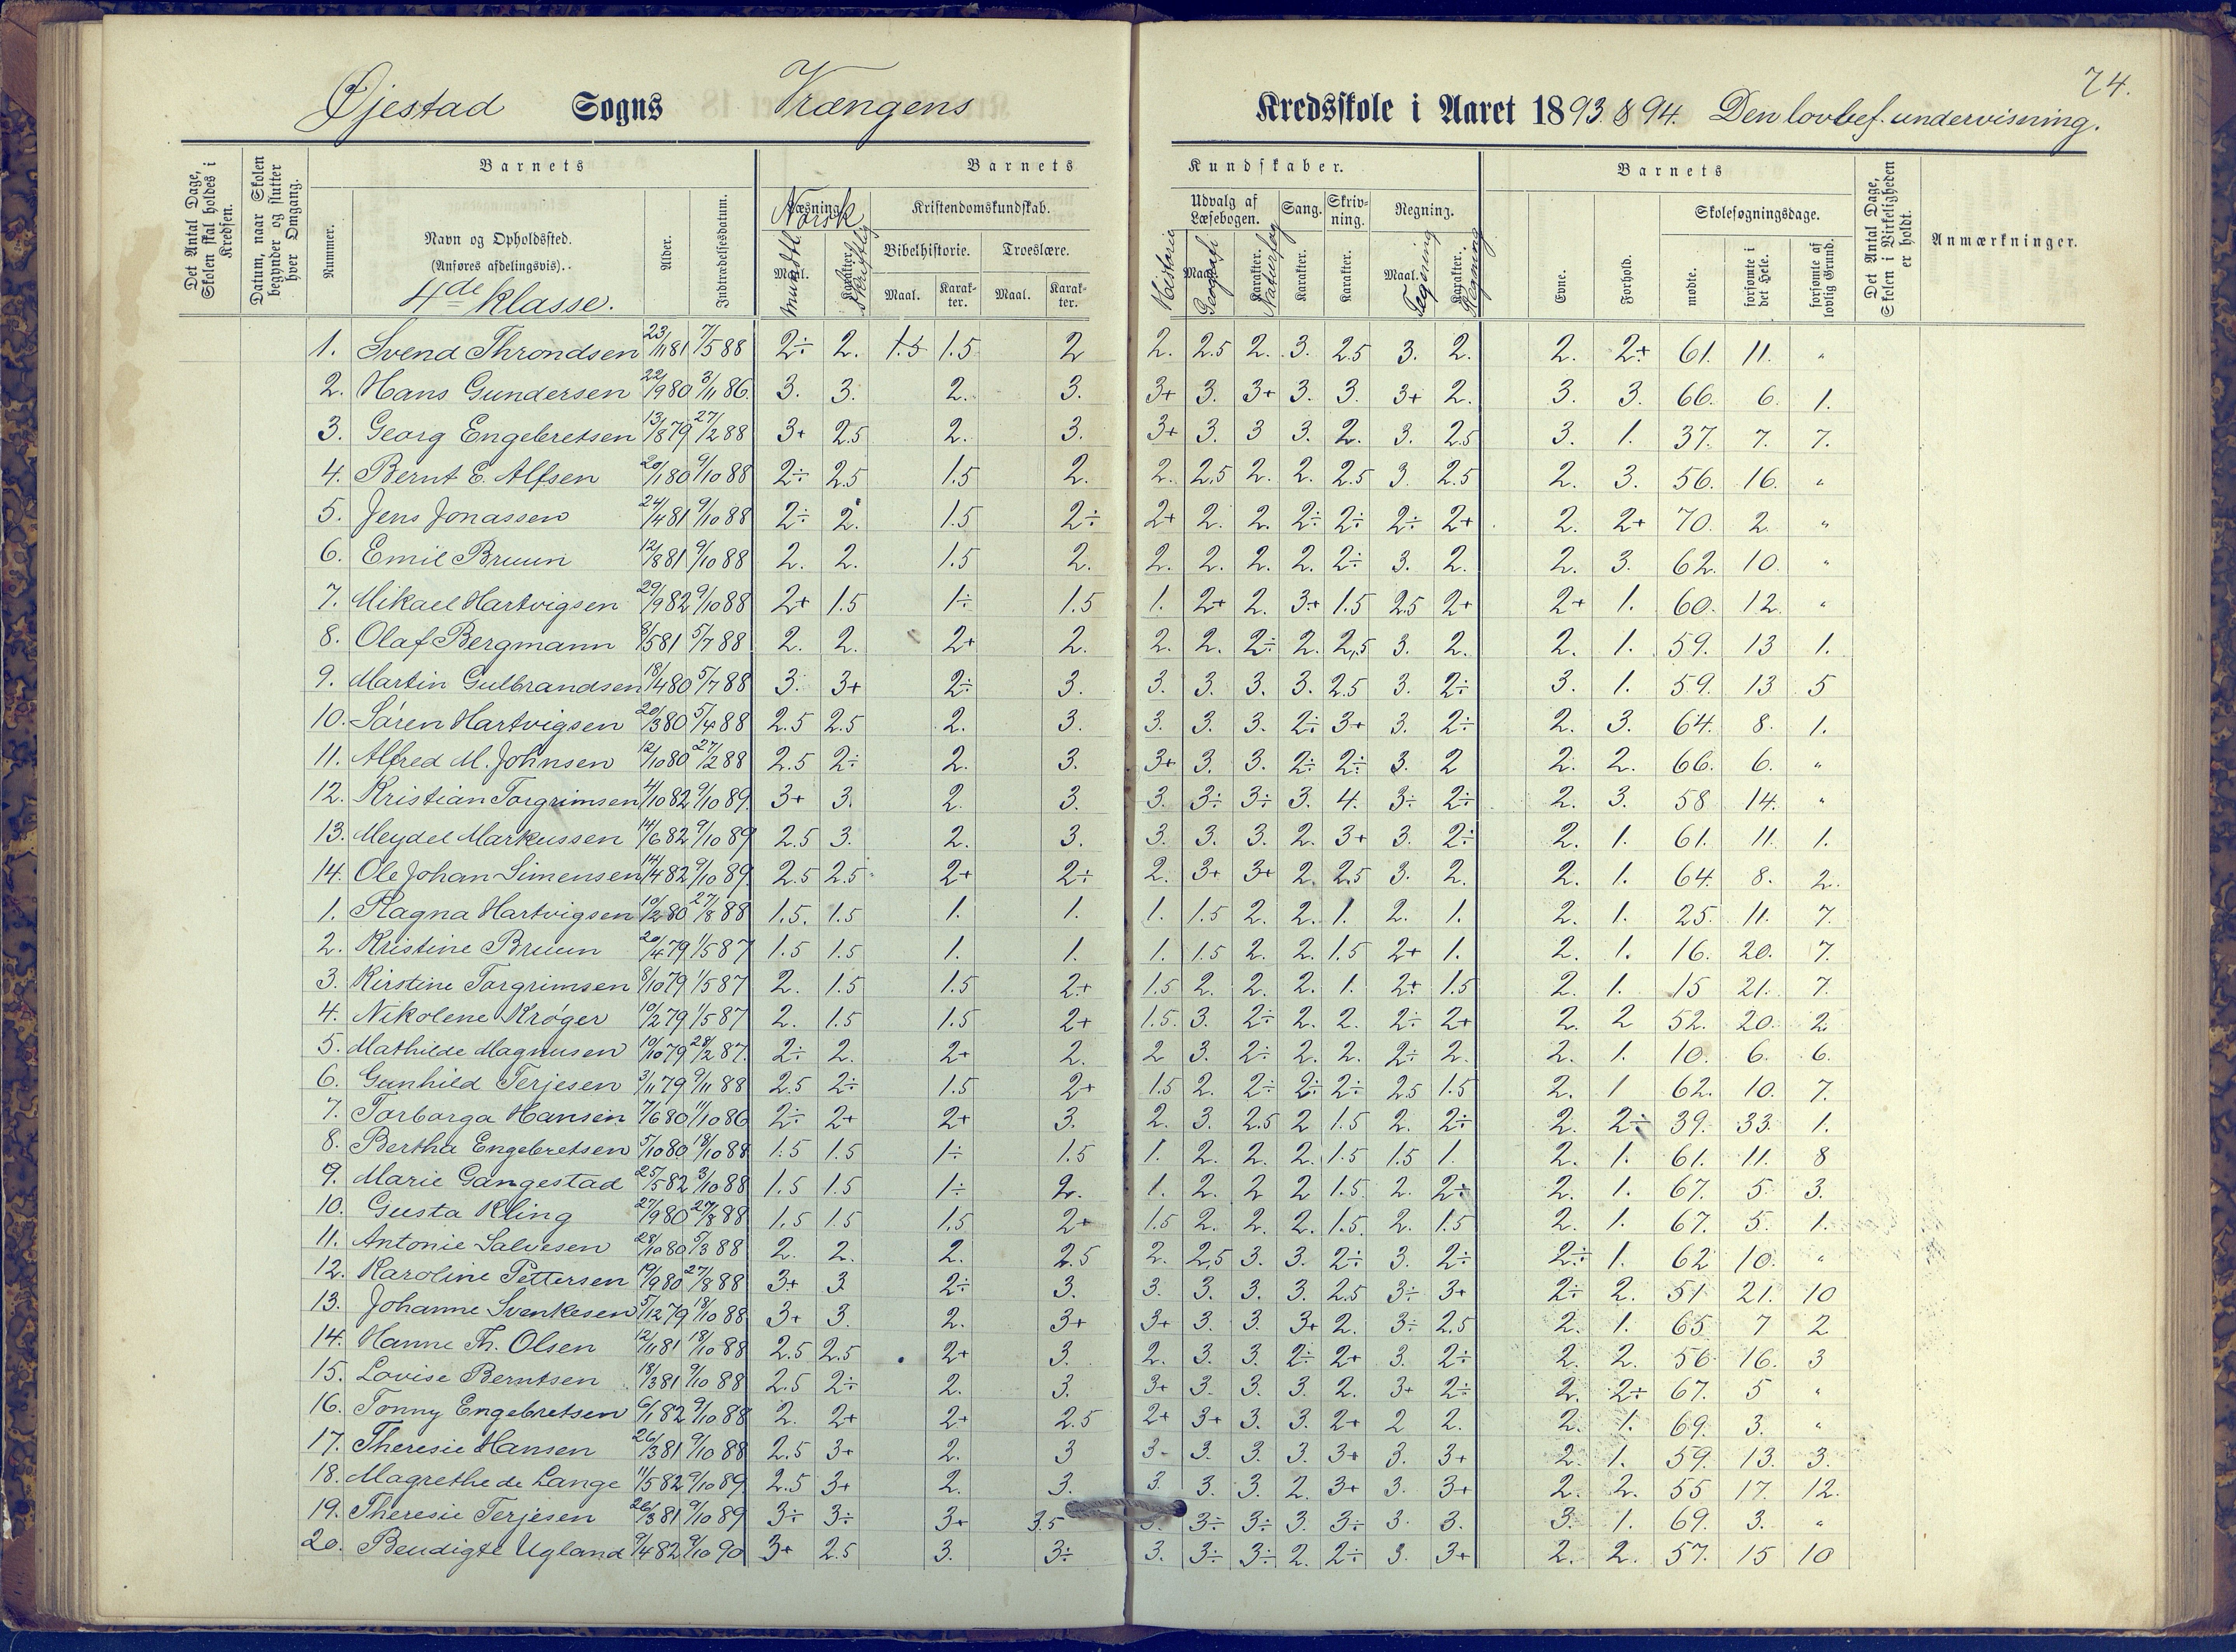 74.
Øjestad Sogns Vrængens Kredsskole i Aaret 1893 & 94. Den lovbef. undervisning.
Det Antal Dage, Skolen skal holdes i Kredsen.
Datum, naar Skolen begynder og slutter hver Omgang.
Barnets
Nummer.
Navn og Opholdssted.
(Anføres afdelingsvis).
4de Klasse.
Alder.
Indtrædelsesdatum.
Barnets Kundskaber.
Læsning. Norsk
Maal. Mundtl.
Karakter. Skriftlig
Kristendomskundskab.
Bibelhistorie. Troeslære.
Maal. Karakter. Maal. Karakter.
Udvalg af Læsebogen.
Historie
Maal. Geografi
Karakter. Naturfag
Sang. Karakter.
Skrivning. Karakter.
Regning.
Maal. Tegning
Karakter. Regning
Barnets
Evne.
Forhold.
Skolesøgningsdage.
mødte.
forsømte i det Hele.
forsømte af lovlig Grund.
Det Antal Dage, Skolen i Virkeligheden er holdt.
Anmærkninger.
1. Svend Throndsen 23/11 81 7/5 88 2÷ 2. 1.5 1.5 2 2. 2.5 2. 3. 2.5 3. 2. 2. 2+ 61. 11. "
2. Hans Gundersen 22/9 80 3/11 86. 3. 3. 2. 3. 3+ 3. 3+ 3. 3. 3+ 2. 3. 3. 66. 6. 1.
3. Georg Engebretsen 13/8 79 27/2 88 3+ 2.5 2. 3. 3+ 3. 3 3. 2. 3. 2.5 3. 1. 37. 7. 7.
4. Bernt E. Alfsen 20/1 80 9/10 88 2÷ 2.5 1.5 2. 2. 2.5 2. 2. 2.5 3. 2.5 2. 3. 56. 16. "
5. Jens Jonassen 24/4 81 9/10 88 2÷ 2. 1.5 2÷ 2+ 2. 2. 2÷ 2÷ 2÷ 2+ 2. 2+ 70. 2 "
6. Emil Bruun 12/8 81 9/10 88 2. 2. 1.5 2. 2. 2. 2. 2. 2÷ 3. 2. 2. 3. 62. 10. "
7. Mikael Hartvigsen 29/9 82 9/10 88 2+ 1.5 1÷ 1.5 1. 2+ 2. 3+ 1.5 2.5 2+ 2+ 1. 60. 12. "
8. Olaf Bergmann 8/5 81 5/7 88 2. 2. 2+ 2. 2. 2. 2÷ 2. 2,5 3. 2. 2. 1. 59. 13 1.
9. Martin Gulbrandsen 18/4 80 5/7 88 3. 3+ 2÷ 3. 3. 3. 3. 3. 2.5 3. 2÷ 3. 1. 59. 13 5
10. Søren Hartvigsen 20/3 80 5/4 88 2.5 2.5 2. 3. 3. 3. 3. 2÷ 3+ 3. 2÷ 2. 3. 64. 8. 1.
11. Alfred M. Johnsen 12/10 80 27/2 88 2.5 2÷ 2. 3. 3+ 3. 3. 2÷ 2÷ 3. 2 2. 2. 66. 6. "
12. Kristian Torgrimsen 4/10 82 9/10 89. 3+ 3. 2. 3. 3. 3÷ 3÷ 3. 4. 3÷ 2÷ 2. 3. 58 14. "
13. Meydel Markussen 14/6 82 9/10 89 2.5 3. 2. 3. 3. 3. 3. 2. 3+ 3. 2÷ 2. 1. 61. 11. 1.
14. Ole Johan Simensen 14/4 82 9/10 89. 2.5 2.5 2+ 2÷ 2. 3+ 3+ 2. 2.5 3. 2. 2. 1. 64. 8. 2.
1. Ragna Hartvigsen 10/2 80 27/8 88 1.5. 1.5 1. 1. 1. 1.5 2. 2. 1. 2. 1. 2. 1. 25. 11. 7.
2. Kristine Bruun 20/4 79 1/5 87 1.5 1.5 1. 1. 1. 1.5 2. 2. 1.5 2+ 1. 2. 1. 16. 20. 7.
3. Kirstine Torgrimsen 8/10 79 1/5 87 2. 1.5 1.5 2+ 1.5 2. 2. 2. 1. 2+ 1.5 2. 1. 15 21. 7.
4. Nikolene Krøger 10/2 79 1/5 87 2. 1.5 1.5 2+ 1.5. 3. 2÷ 2. 2. 2÷ 2+ 2. 2 52. 20. 2.
5. Mathilde Magnusen 10/10 79 28/2 87. 2÷ 2. 2+ 2. 2 3. 2÷ 2. 2. 2÷ 2. 2. 1. 10. 6. 6.
6. Gunhild Terjesen 3/11 79 9/11 88 2.5 2÷ 1.5 2+ 1.5 2. 2÷ 2÷ 2÷ 2.5 1.5 2. 1 62. 10. 7.
7. Torborga Hansen 7/6 80 11/10 86 2÷ 2+ 2+ 3. 2. 3. 2.5 2 1.5 2. 2÷ 2. 2÷ 39. 33. 1.
8. Bertha Engebretsen 5/10 80 18/10 88 1.5 1.5 1÷ 1.5 1. 2. 2. 2. 1.5 1.5 1. 2. 1. 61. 11. 8
9. Marie Gangestad 25/5 82 3/10 88 1.5 1.5 1÷ 2. 1. 2. 2 2 1.5. 2. 2÷ 2. 1. 67. 5. 3.
10. Gusta Kling 27/9 80 27/8 88 1.5 1.5 1.5 2+ 1.5 2. 2. 2. 1.5. 2. 1.5 2. 1. 67. 5. 1.
11. Antonie Salvesen 28/10 80 5/3 88 2. 2. 2. 2.5 2. 2,5 3. 3. 2÷ 3. 2÷ 2÷ 1. 62 10. "
12. Karoline Pettersen 19/9 80 27/8 88 3+ 3 2÷ 3. 3. 3. 3. 3. 2.5 3÷ 3+ 2÷ 2. 51 21. 10
13. Johanne Svenkesen 5/12 79 18/10 88 3+ 3. 2. 3+ 3+ 3. 3. 3+ 2. 3÷ 2.5 2. 1. 65 7 2
14. Hanne Th. Olsen 12/11 81 18/10 88 2.5 2.5 2+ 3. 2. 3. 3. 2÷ 2+ 3. 2÷ 2. 2. 56 16. 3
15. Lovise Berntsen 18/3 81 9/10 88 2.5 2÷ 2. 3. 3+ 3. 3. 3. 2. 3+ 2÷ 2. 2÷ 67. 5 "
16. Tonny Engebretsen 6/1 82 9/10 88 2. 2+ 2+ 2.5 2+ 3+ 3. 3. 2+ 2 2. 2. 1. 69. 3. "
17. Theresie Hansen 26/3 81 9/10 88 2.5 3+ 2. 3 3- 3. 3. 3. 3+ 3. 3+ 2. 1. 59. 13. 3.
18. Magrethe de Lange 11/5 82 9/10 89. 2.5 3+ 2. 3. 3. 3. 3. 2. 3+ 3. 3+ 2. 2. 55 17. 12.
19. Theresie Terjesen 26/3 81 9/10 89 3÷ 3÷ 3+ 3.5 3. 3÷ 3÷ 3. 3÷ 3. 3. 3. 1. 69. 3. "
20. Bendigte Ugland 9/4 82 9/10 90 3+ 2.5 3. 3÷ 3. 3÷ 3÷ 2. 2÷ 3. 3+ 2. 2. 57. 15 10